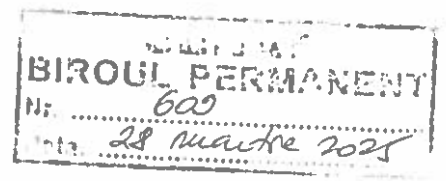 BIROUL PERMANENT
Nr. 600
28 martie 2025